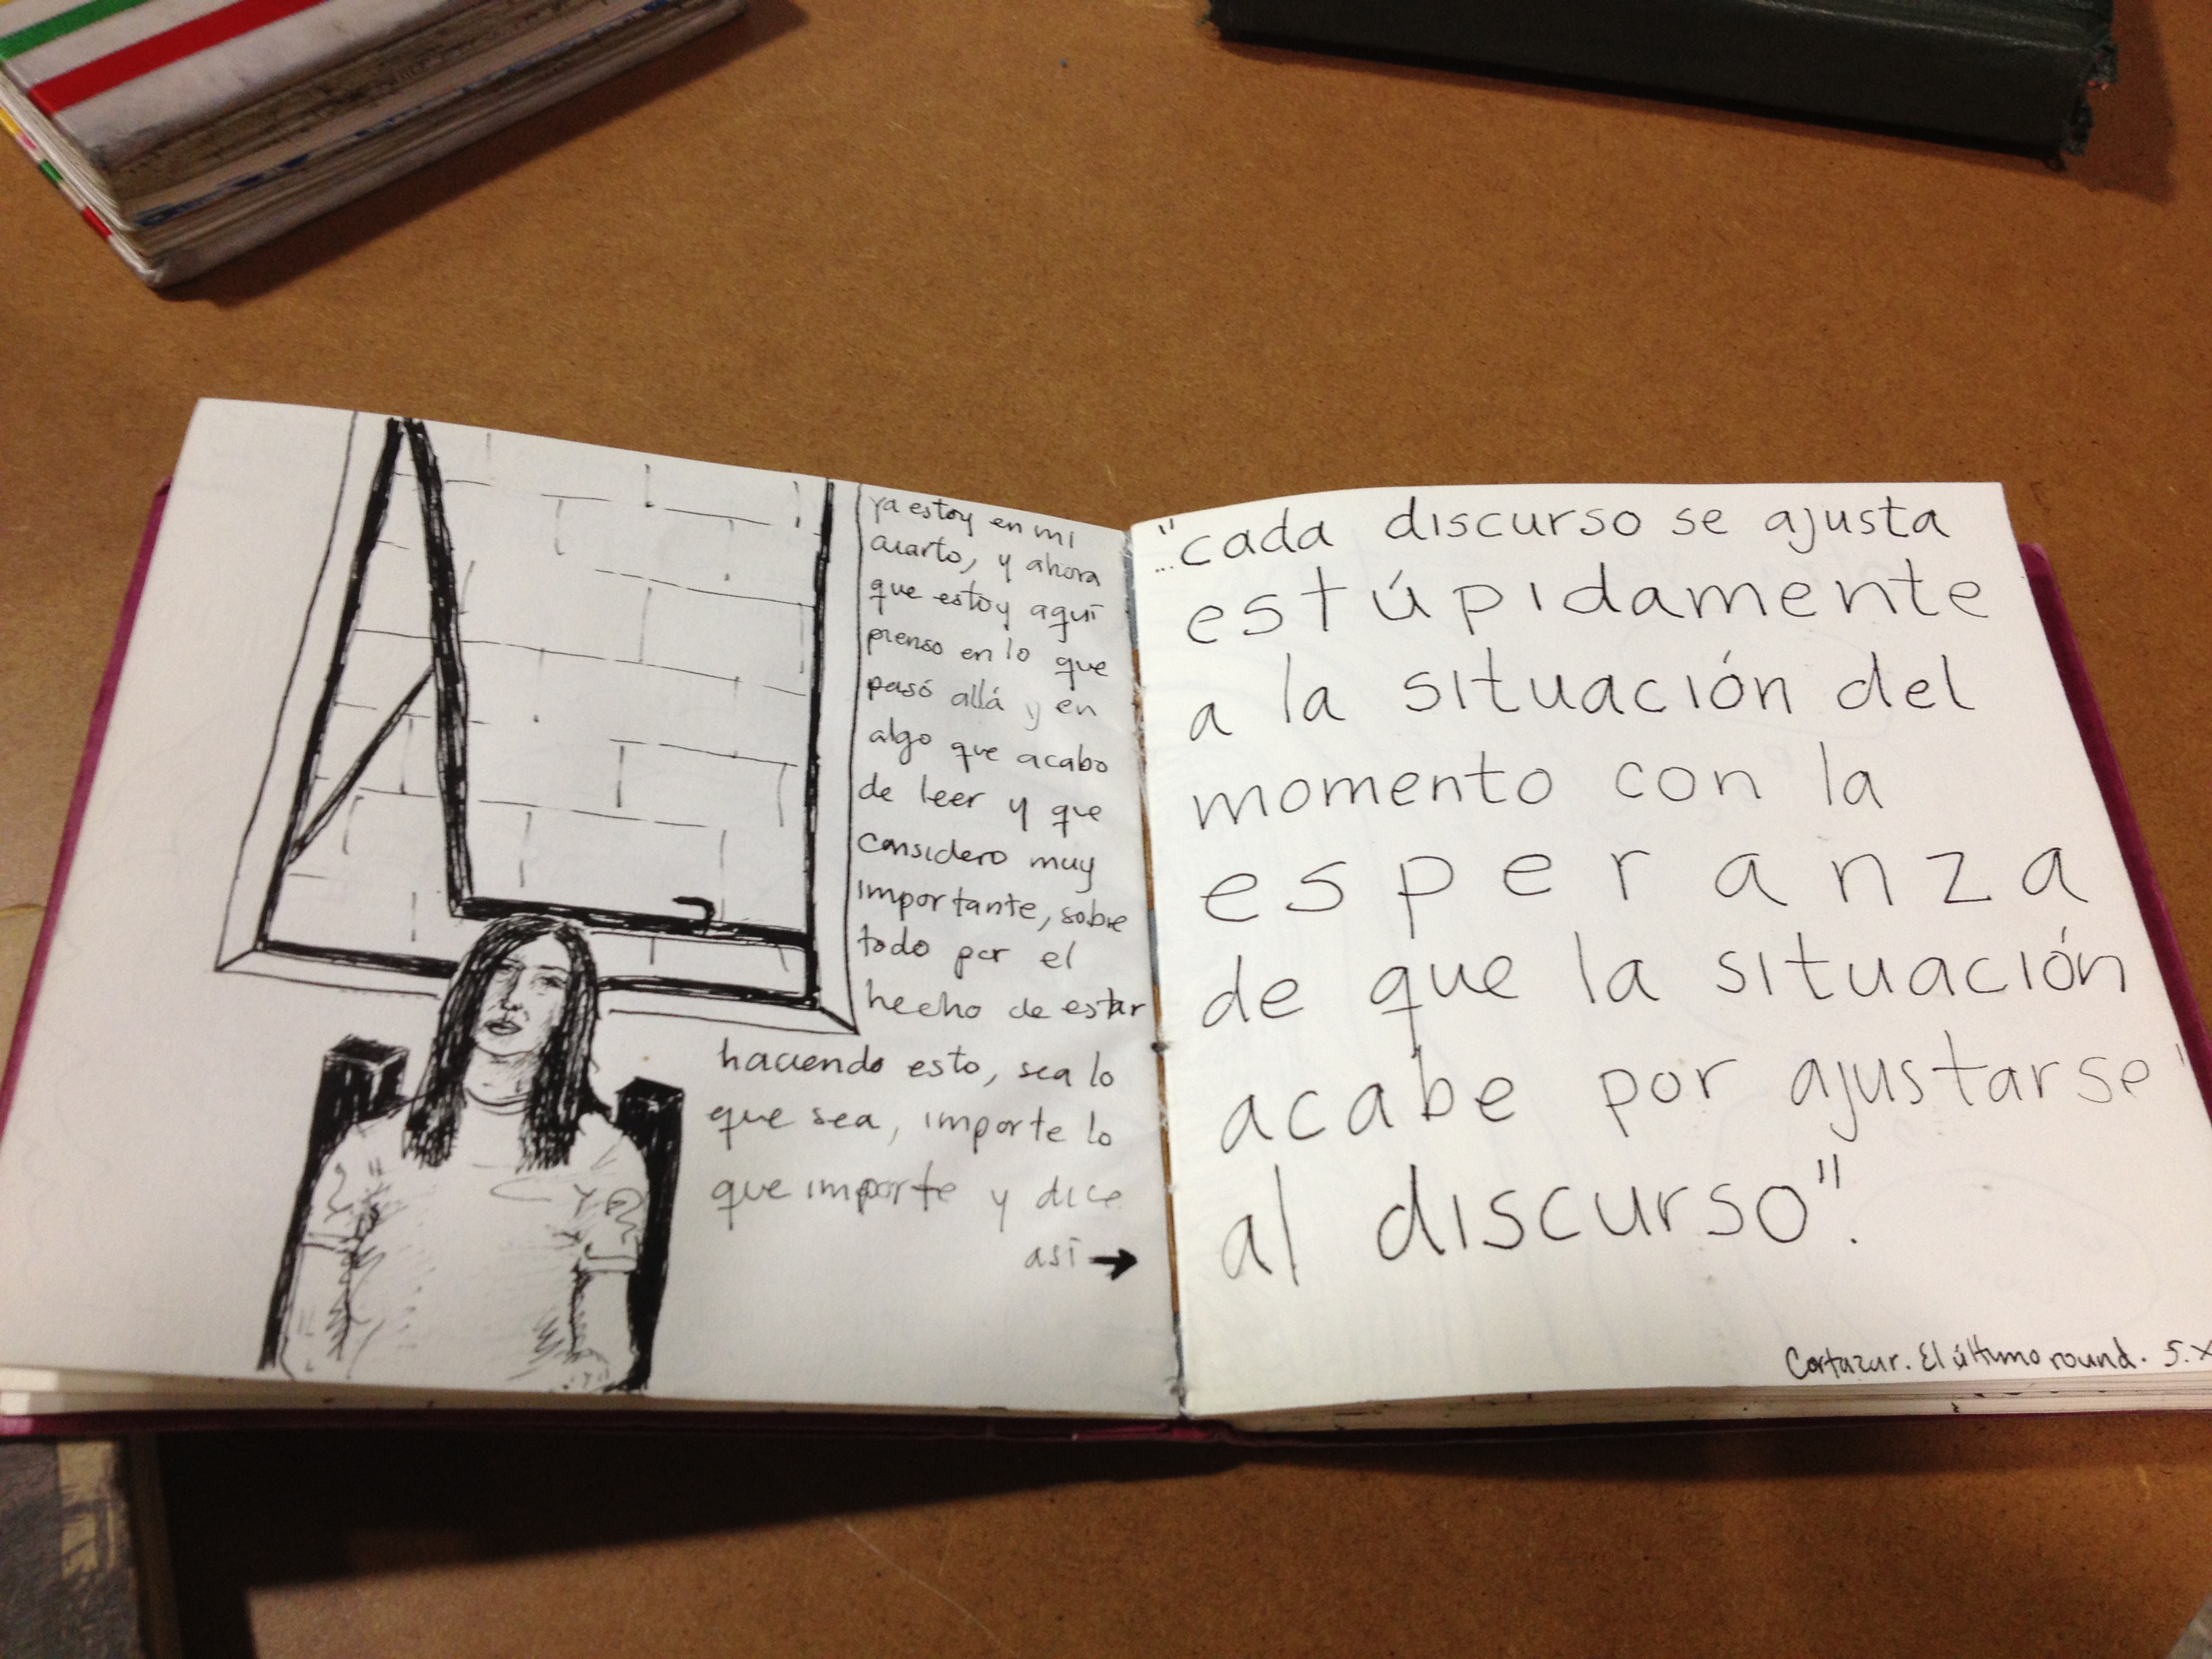 ya estoy en mi
cuarto, y ahora
que estoy aquí
pienso en lo que
pasó allá y en
algo que acabo
de leer y que
considero muy
importante, sobre
todo por el
hecho de estar
haciendo esto, sea lo
que sea, importe lo
que importe y dice
así →
..."cada discurso se ajusta
estúpidamente
a la situación del
momento con la
esperanza
de que la situación
acabe por ajustarse
al discurso".
Cortazar. El último round. 5.X